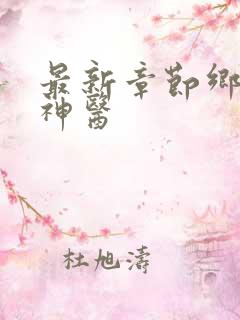 最新章節鄉
神醫
杜旭濤